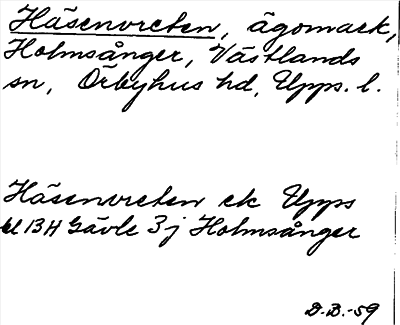 Häsenvreten, ägomark,
Holmsånger, Västlands
sn, Örbyhus hd, Upps. l.
Häsenvreten ek Upps
bl 13H Gävle 3j Holmsånger
D.B.-59